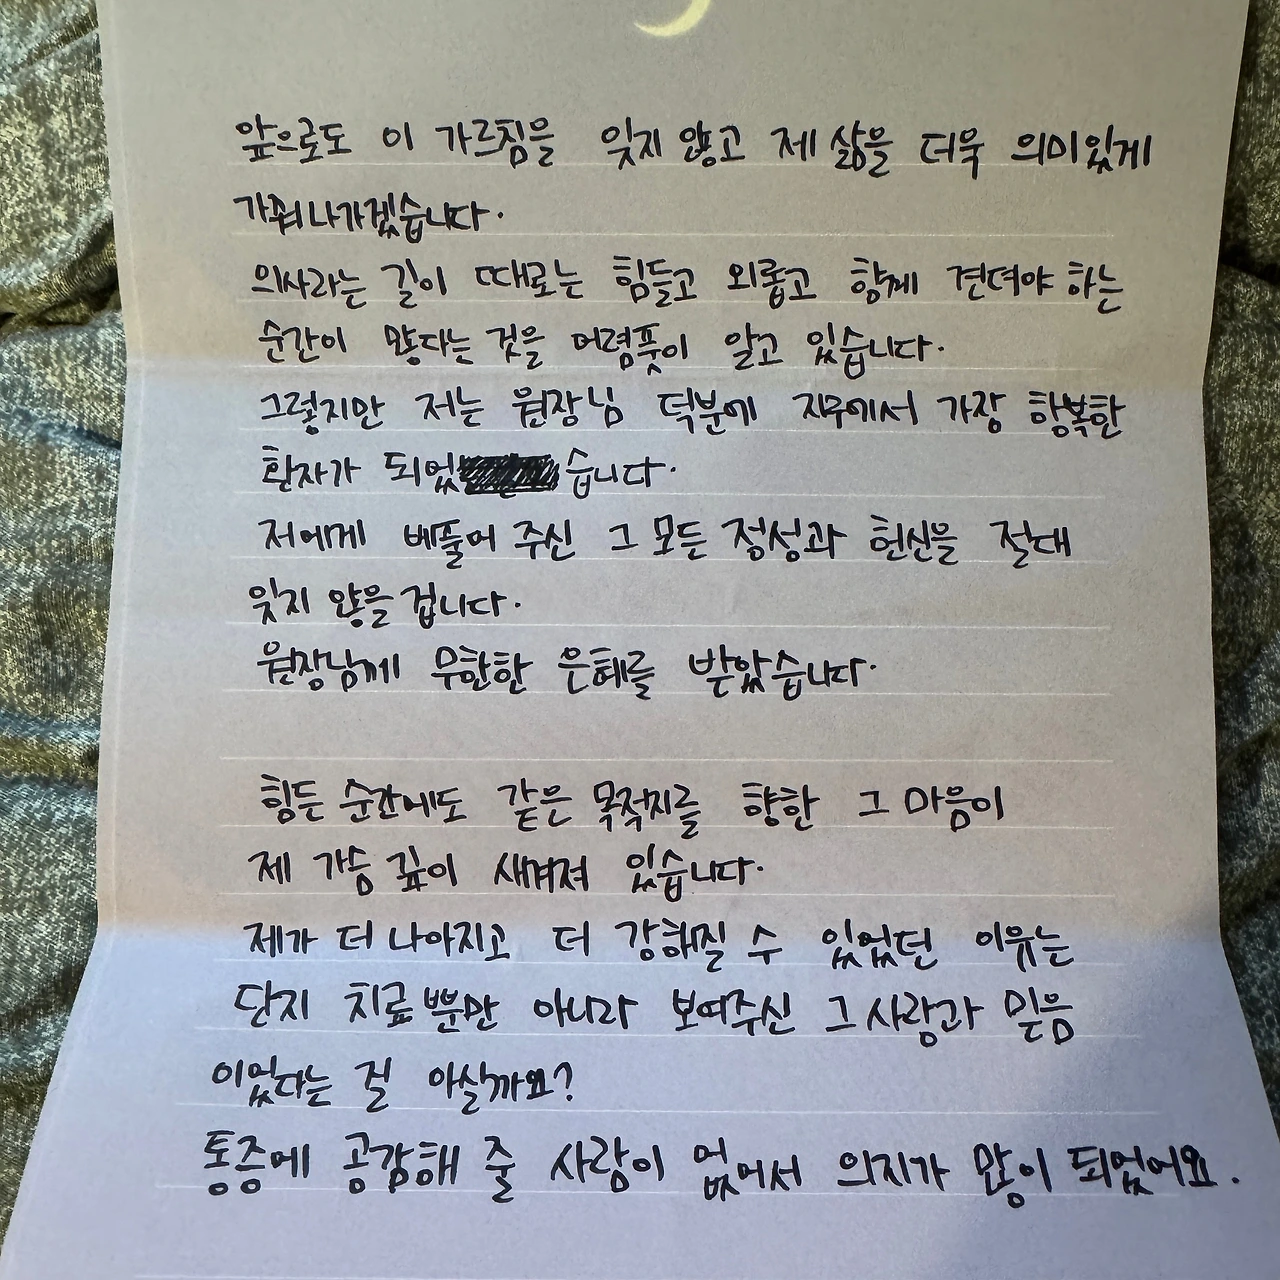 앞으로도 이 가르침을 잊지 않고 제 삶을 더욱 의미있게
가꿔나가겠습니다.
의사라는 길이 때로는 힘들고 외롭고 함께 견뎌야 하는
순간이 많다는 것을 어렴풋이 알고 있습니다.
그렇지만 저는 원장님 덕분에 지구에서 가장 행복한
환자가 되었습니다.
저에게 베풀어 주신 그 모든 정성과 헌신을 절대
잊지 않을 겁니다.
원장님께 무한한 은혜를 받았습니다.
힘든 순간에도 같은 목적지를 향한 그 마음이
제 가슴 깊이 새겨져 있습니다.
제가 더 나아지고 더 강해질 수 있었던 이유는
단지 치료뿐만 아니라 보여주신 그 사랑과 믿음
이었다는 걸 아실까요?
통증에 공감해 줄 사람이 없어서 의지가 많이 되었어요.